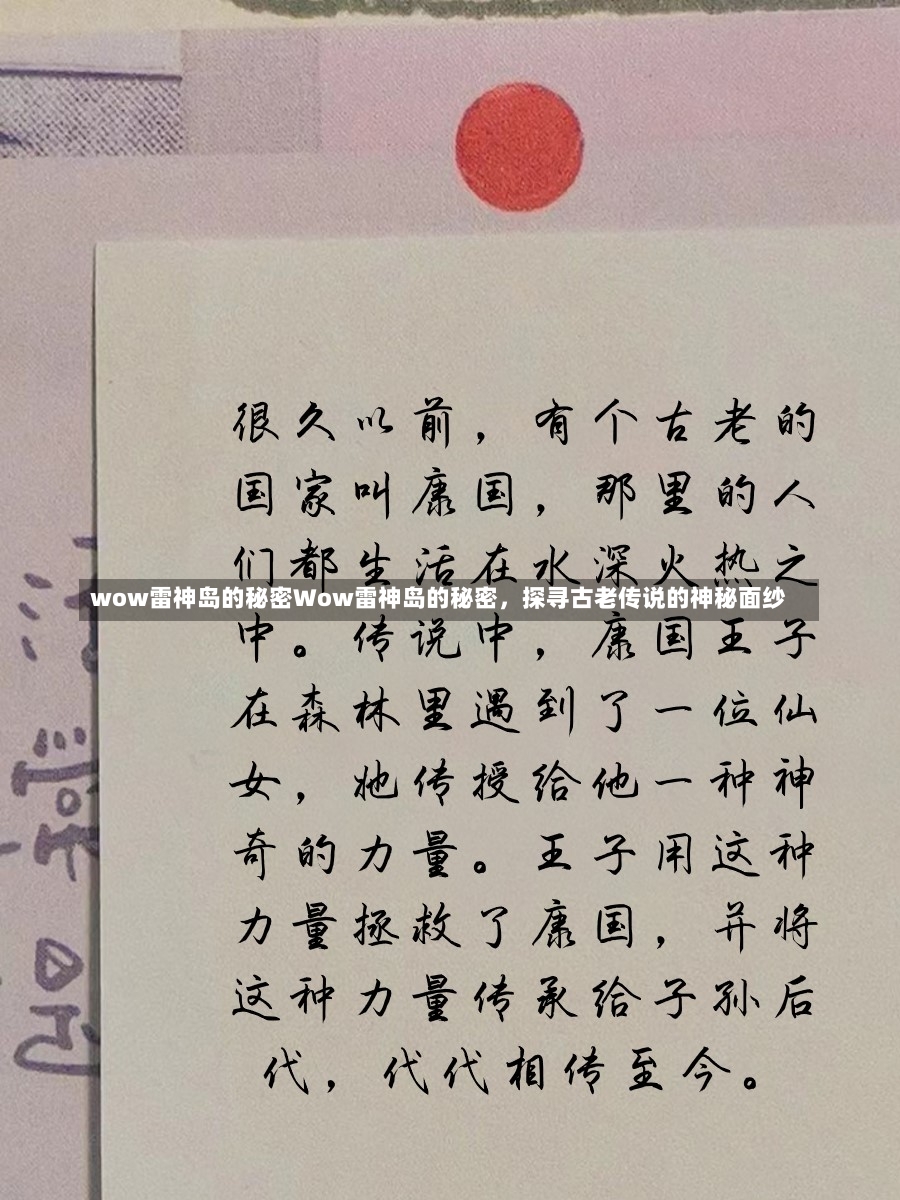 很久以前，有个古老的
国家叫康国，那里的人
们都生活在水深火热之
wow雷神岛的秘密Wow雷神岛的秘密，探寻古老传说的神秘面纱
中。传说中，康国王子
在森林里遇到了一位仙
女，她传授给他一种神
奇的力量。王子用这种
力量拯救了康国，并将
这种力量传承给子孙后
代，代代相传至今。